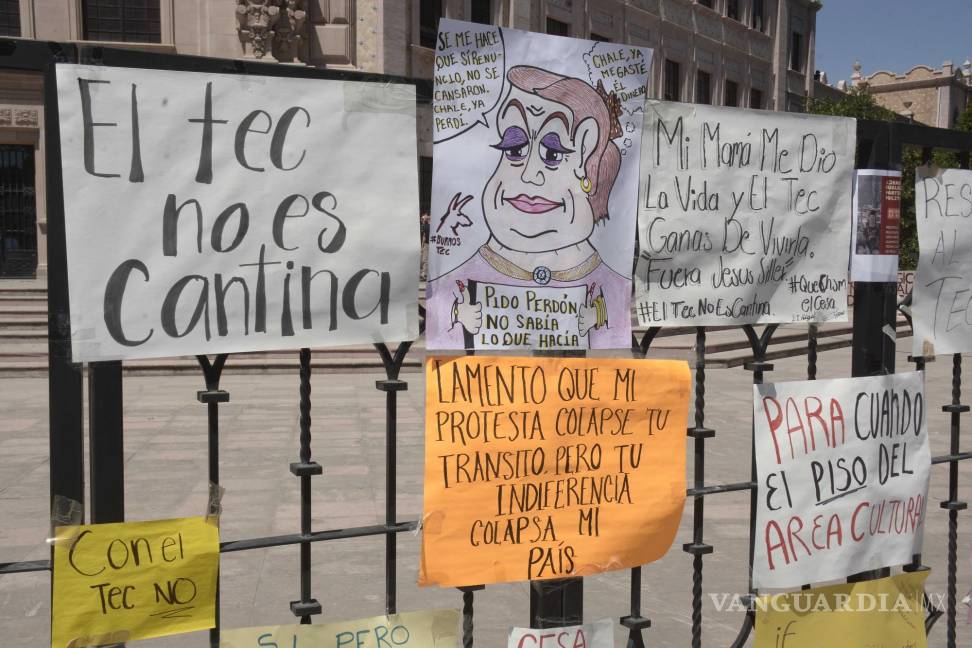 El tec
no es
Cantina
SE ME HACE
QUE SÍ RENU-
NCIO, NO SE
CANSARON.
CHALE, YA
PERDÍ.
CHALE, YA
ME GASTE
EL
DINERO
#BURROS
TEC
PIDO PERDÓN
NO SABÍA
LO QUE HACÍA
Mi Mamá Me Dio
La Vida y El Tec
Ganas De Vivirla.
"Fuera Jesus Soller"
#QueChsm
el Cesa
#El Tec No Es Cantina
RES
AL
TE
LAMENTO QUE MI
PROTESTA COLAPSE TU
TRANSITO PERO TU
INDIFERENCIA
COLAPSA MI
PAÍS
PARA CUANDO
El PISO DEL
AREA CULTURAL
Con el
Tec NO
SI PERO
CESA
if
VANGUARDIA MX